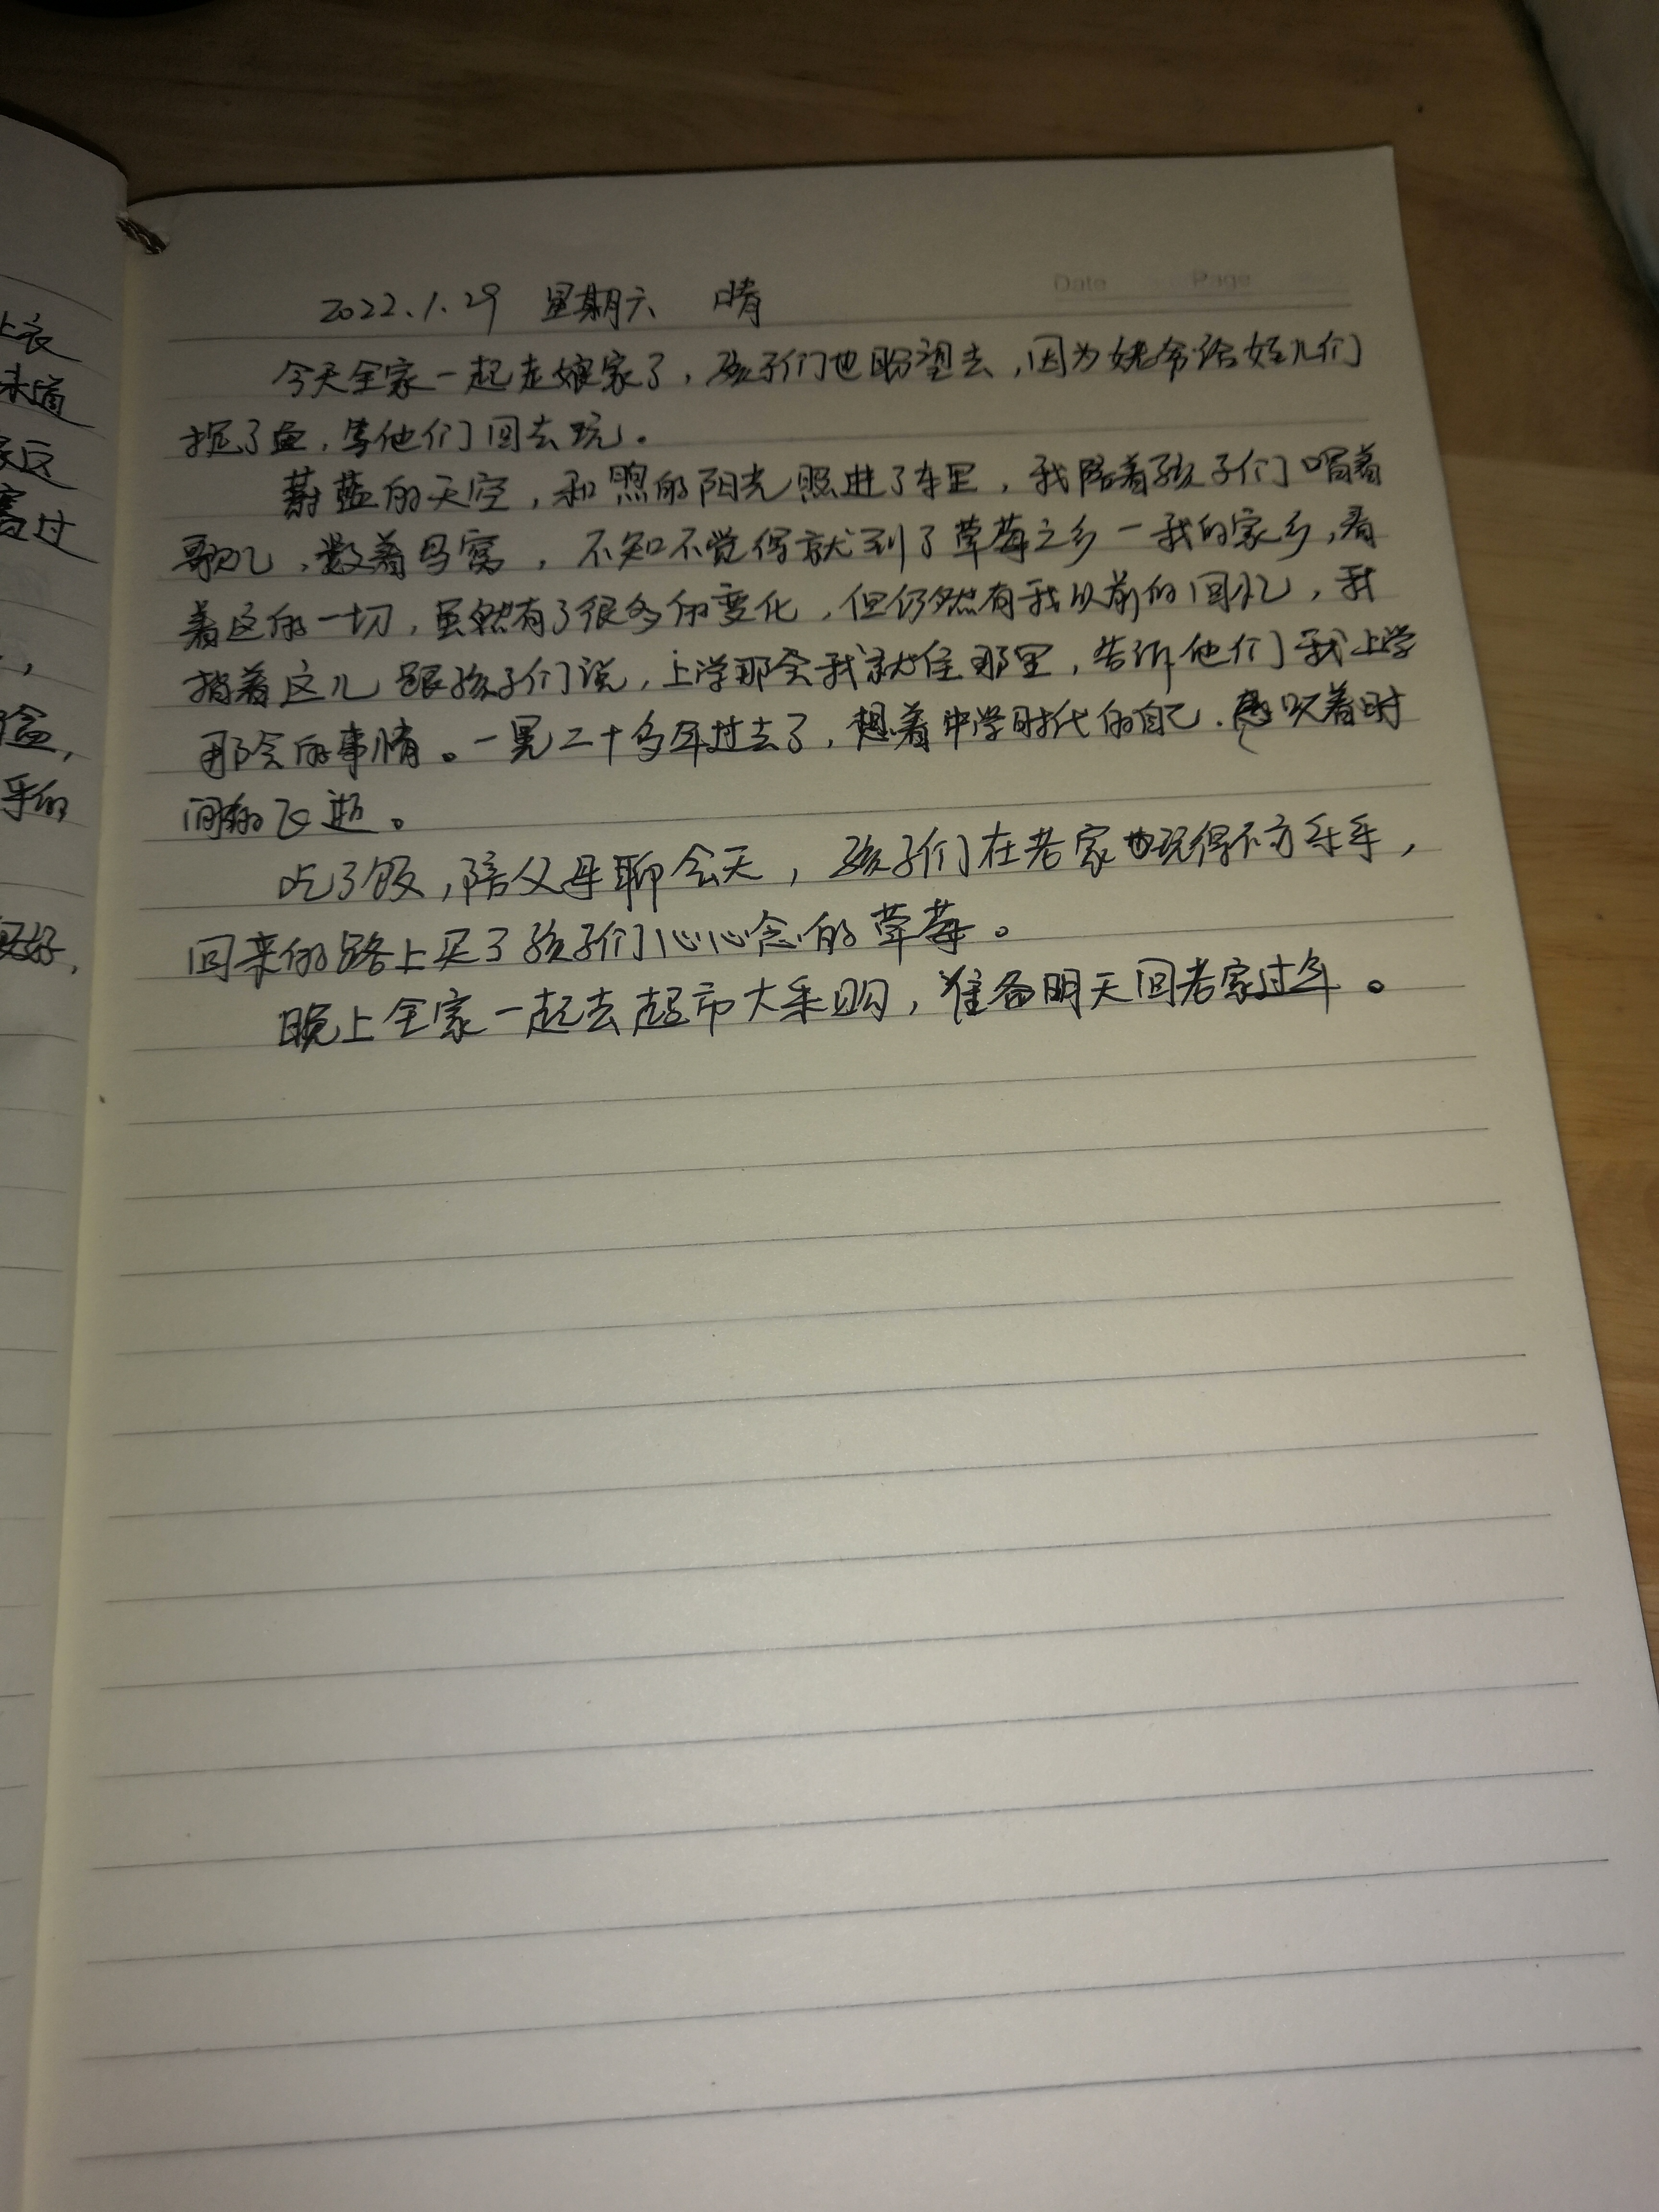 上衣
味道
家这
过
盒,
乐的
好,
Date Page
2022.1.29 星期六 晴
今天全家一起走娘家了,孩子们也盼望去,因为姥爷给娃儿们
抠了鱼,等他们回去玩。
蔚蓝的天空,和煦的阳光照进了车里,我陪着孩子们唱着
歌儿,数着鸟窝,不知不觉得就到了草莓之乡一我的家乡,看
着这的一切,虽然有了很多的变化,但仍然有我以前的回忆,我
指着这儿跟孩子们说,上学那会我就住那里,告诉他们我上学
那会的事情。一晃二十多年过去了,想着中学时代的自己.感叹着时
间的飞逝。
吃了饭,陪父母聊会天,孩子们在老家也玩得不亦乐乎,
回来的路上买了孩子们心心念的草莓。
晚上全家一起去超市大采购,准备明天回老家过年。